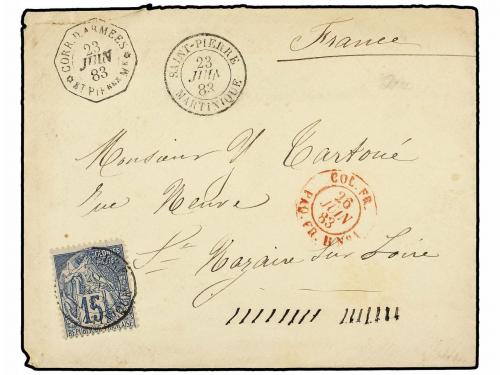 CORR. D. ARMEES
23
JUIN
83
ST PIERRE MQ
SAINT-PIERRE
23
JUIN
83
MARTINIQUE
France
Monsieur Y Tartoué
rue Neuve
St
Nazaire sur Loire
COL. FR.
26
JUIN
83
PAQ. FR. B Nº1
15
REPUBLIQUE FRANÇAISE